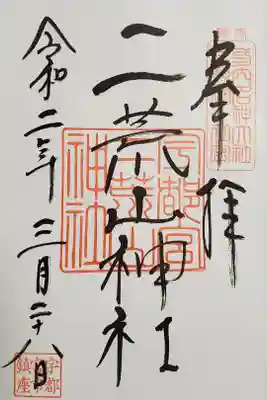 奉拝
二荒山神社
令和二年三月二十八日
宇都宮
二荒山
神社
宇都
宮
鎮座